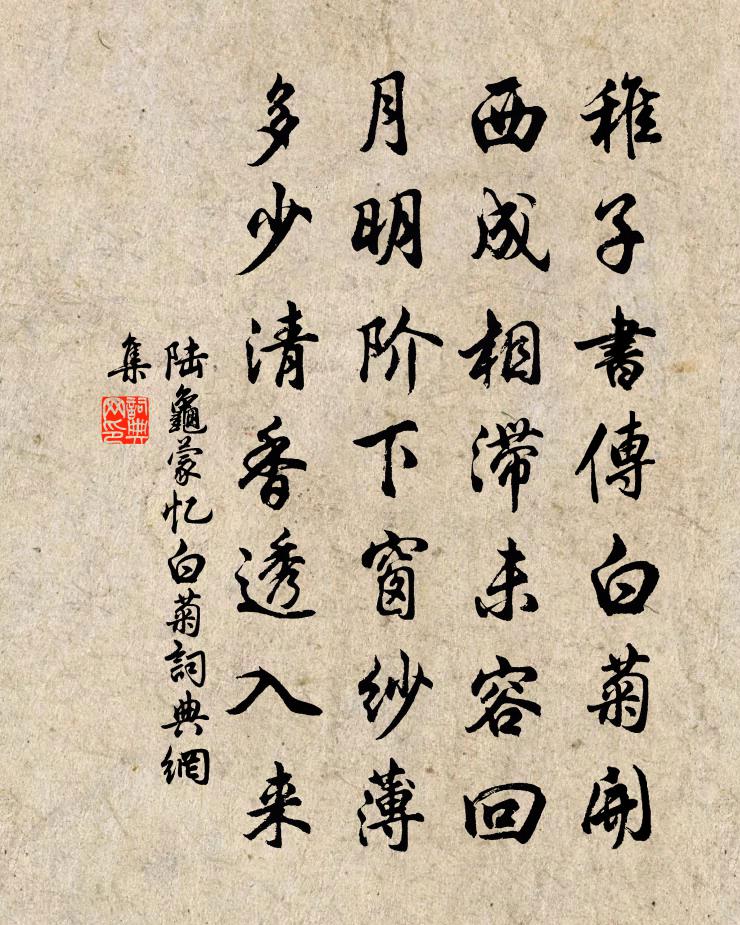 稚子書傳白菊開
西成相滞未容回
月明阶下窗纱薄
多少清香透入来
陆龜蒙忆白菊詞典網
集
詞典
网印